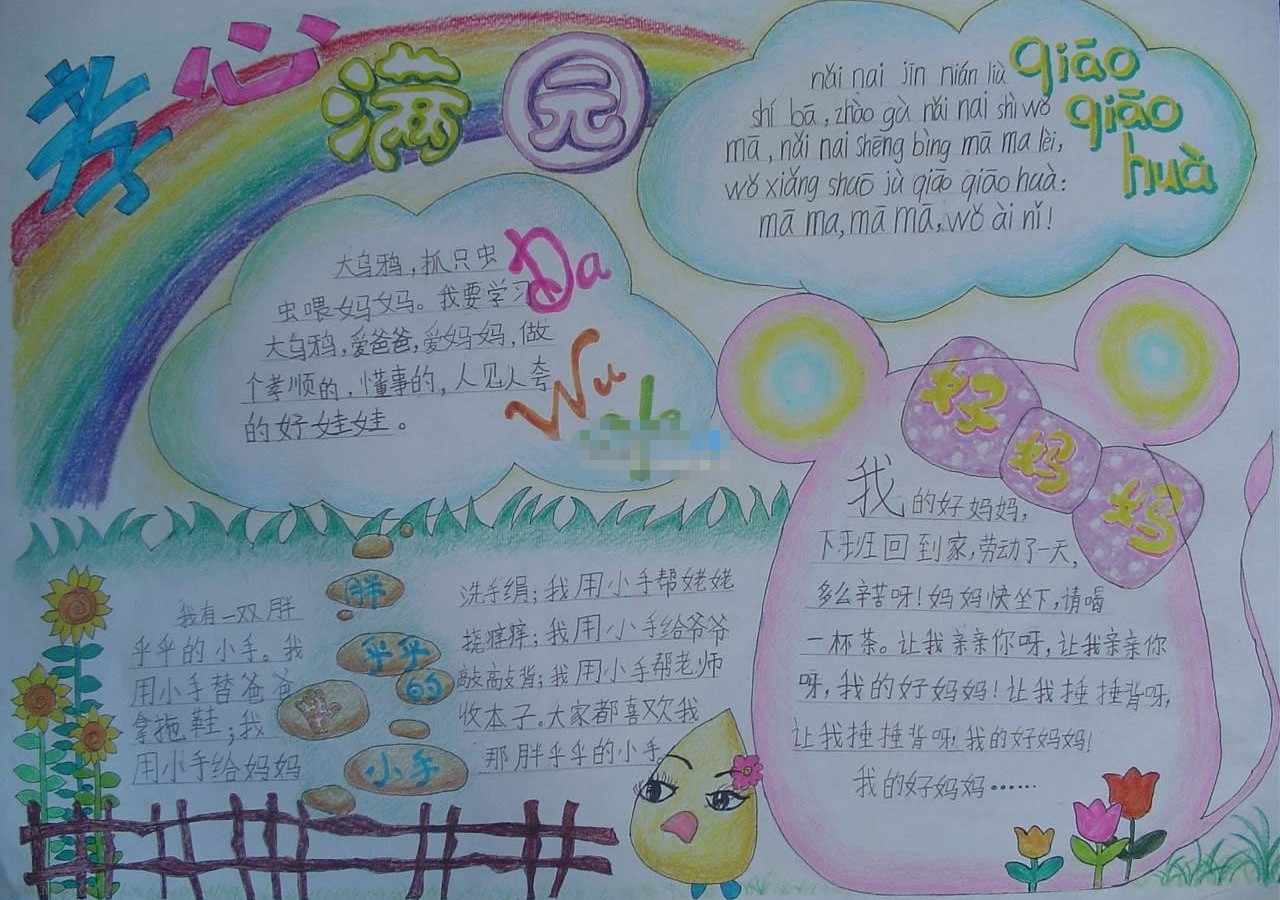 孝心满园
nǎi nai jīn nián lià
shí bā, zhào gà nǎi nai shì wǒ
mā, nǎi nai shēng bìng mā ma lèi,
wǒ xiǎng shuō jù qiāo qiāo huà:
mā ma, mā mā, wǒ ài nǐ!
qiāo
qiāo
huà
大乌鸦,抓只虫
虫喂妈妈。我要学习
大乌鸦,爱爸爸,爱妈妈,做
个孝顺的,懂事的,人见人夸
的好娃娃。
Da
Wu
好妈妈
我的好妈妈,
下班回到家,劳动了一天,
多么辛苦呀!妈妈快坐下,请喝
一杯茶。让我亲亲你呀,让我亲亲你
呀,我的好妈妈!让我捶捶背呀,
让我捶捶背呀!我的好妈妈!
我的好妈妈……
胖
乎乎
的
小手
我有一双胖
乎乎的小手。我
用小手替爸爸
拿拖鞋;我
用小手给妈妈
洗手绢;我用小手帮姥姥
挠痒痒;我用小手给爷爷
敲敲背;我用小手帮老师
收本子。大家都喜欢我
那胖乎乎的小手